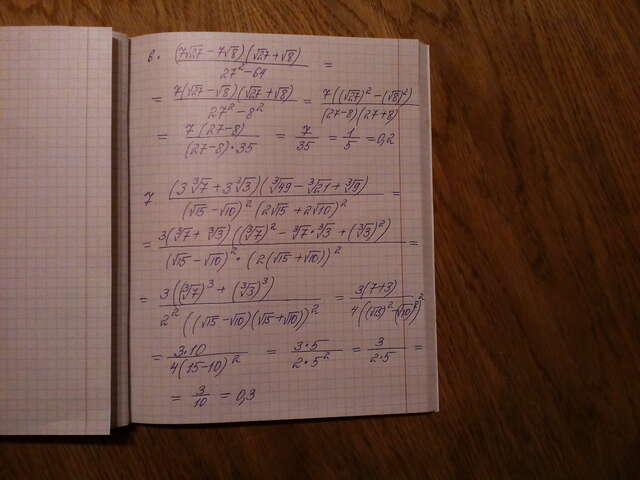 6. (7√27 − 7√8)(√27 + √8) / 27² − 64 =
= 7(√27 − √8)(√27 + √8) / 27² − 8² = 7((√27)² − (√8)²) / (27−8)(27+8)
= 7(27−8) / (27−8)·35 = 7/35 = 1/5 = 0,2
7 (3∛7 + 3∛3)(∛49 − ∛21 + ∛9) / (√15 − √10)² (2√15 + 2√10)² =
= 3(∛7 + ∛3)((∛7)² − ∛7·∛3 + (∛3)²) / (√15 − √10)² · (2(√15 + √10))² =
= 3((∛7)³ + (∛3)³) / 2² ((√15 − √10)(√15 + √10))² = 3(7+3) / 4((√15)² − (√10)²)²
= 3·10 / 4(15−10)² = 3·5 / 2·5² = 3 / 2·5 =
= 3/10 = 0,3